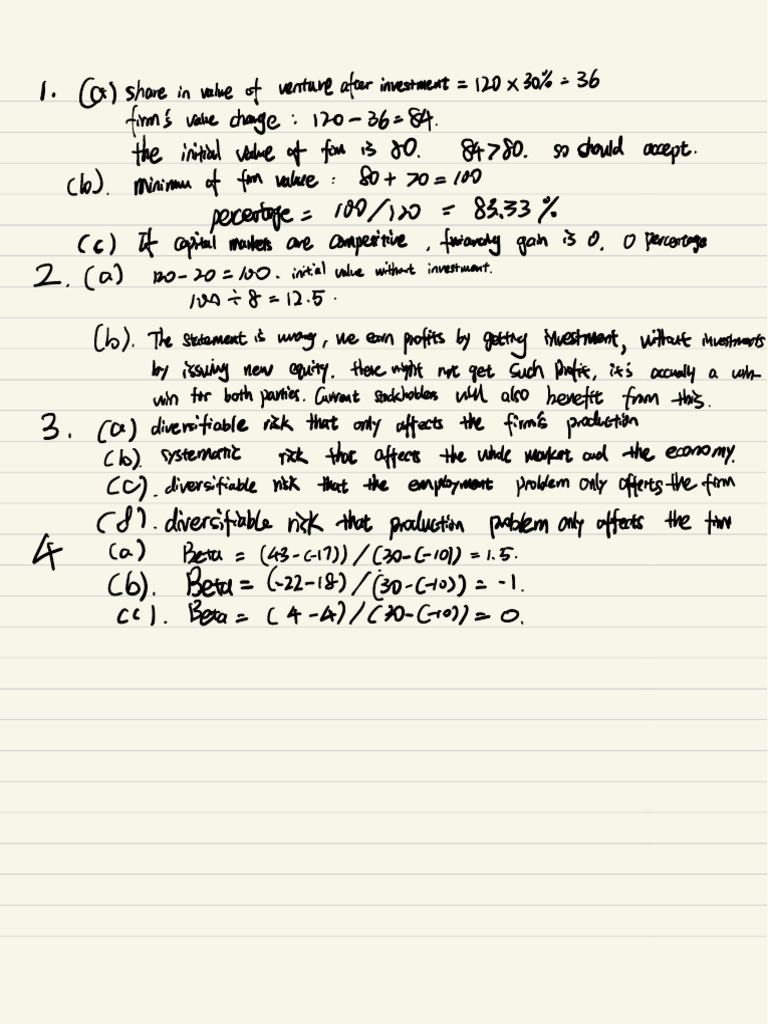 1. (a) share in value of venture after investment = 120 × 30% = 36
firm's value change : 120 - 36 = 84.
the initial value of firm is 80. 84 > 80. so should accept.
(b). minimum of firm value : 80 + 20 = 100
percentage = 100 / 120 = 83.33 %
(c) If capital markets are competitive , financing gain is 0. 0 percentage
2. (a) 120 - 20 = 100. initial value without investment.
100 ÷ 8 = 12.5.
(b). The statement is wrong, we earn profits by getting investment, without investments
by issuing new equity. there might not get such profit, it's actually a win-
win for both parties. Current stockholders will also benefit from this.
3. (a) diversifiable risk that only affects the firm's production
(b). systematic risk that affects the whole market and the economy.
(c). diversifiable risk that the employment problem only affects the firm
(d). diversifiable risk that production problem only affects the firm
4 (a) Beta = (43 - (-17)) / (30 - (-10)) = 1.5.
(b). Beta = (-22 - 18) / (30 - (-10)) = -1.
(c). Beta = ( 4 - 4) / (30 - (-10)) = 0.